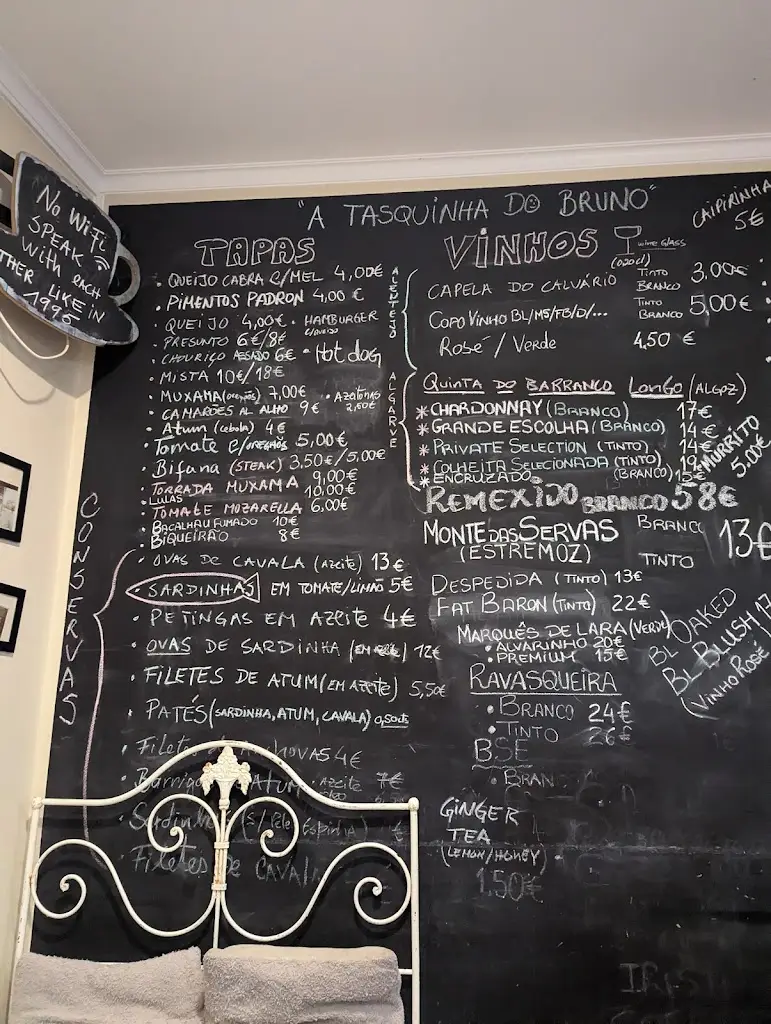 No Wi-Fi
SPEAK
with each
THER LIKE IN
1995
"A TASQUINHA DO BRUNO"
TAPAS
QUEIJO CABRA C/MEL 4,00€
PIMENTOS PADRON 4,00 €
QUEIJO 4,00€ · HAMBURGER
PRESUNTO 6€/8€
CHOURIÇO ASSADO 6€ · Hot dog
MISTA 10€/18€
MUXAMA 7,00€ · AZEITONAS
CAMARÕES AL ALHO 9€
Atum (cebola) 4€
Tomate C/OREGÃOS 5,00€
Bifana (STEAK) 3.50€/5,00€
TORRADA MUXAMA 9,00€
LULAS 10,00€
TOMATE MOZARELLA 6,00€
BACALHAU FUMADO 10€
BIQUEIRÃO 8€
ALENTEJO
ALGARVE
CONSERVAS
OVAS DE CAVALA (AZEITE) 13€
SARDINHAS EM TOMATE/LIMÃO 5€
PETINGAS EM AZEITE 4€
OVAS DE SARDINHA 12€
FILETES DE ATUM (EM AZEITE) 5,50€
PATÉS (SARDINHA, ATUM, CAVALA)
4€
ATUM · AZEITE 7€
Filetes DE CAVALA
VINHOS
WINE GLASS
CAPELA DO CALVÁRIO TINTO BRANCO 3,00€
COPO VINHO BL/MS/FB/D/... TINTO BRANCO 5,00€
ROSÉ / VERDE 4,50 €
QUINTA DO BARRANCO LONGO (ALGRZ)
*CHARDONNAY (BRANCO) 17€
*GRANDE ESCOLHA (BRANCO) 14€
*PRIVATE SELECTION (TINTO) 14€
*COLHEITA SELECIONADA (TINTO)
*ENCRUZADO (BRANCO) 15€
REMEXIDO BRANCO 58€
MONTE DAS SERVAS BRANCO 13€
(ESTREMOZ) TINTO
DESPEDIDA (TINTO) 13€
FAT BARON (TINTO) 22€
MARQUÊS DE LARA (VERDE)
· ALVARINHO 20€
· PREMIUM 15€
RAVASQUEIRA
· BRANCO 24€
· TINTO 26€
BSE
· BRAN
GINGER
TEA
(LEMON/HONEY)
1.50€
CAIPIRINHA
5€
MURRITO
5.00€
BL OAKED
BL BLUSH 17
(VINHO ROSÉ